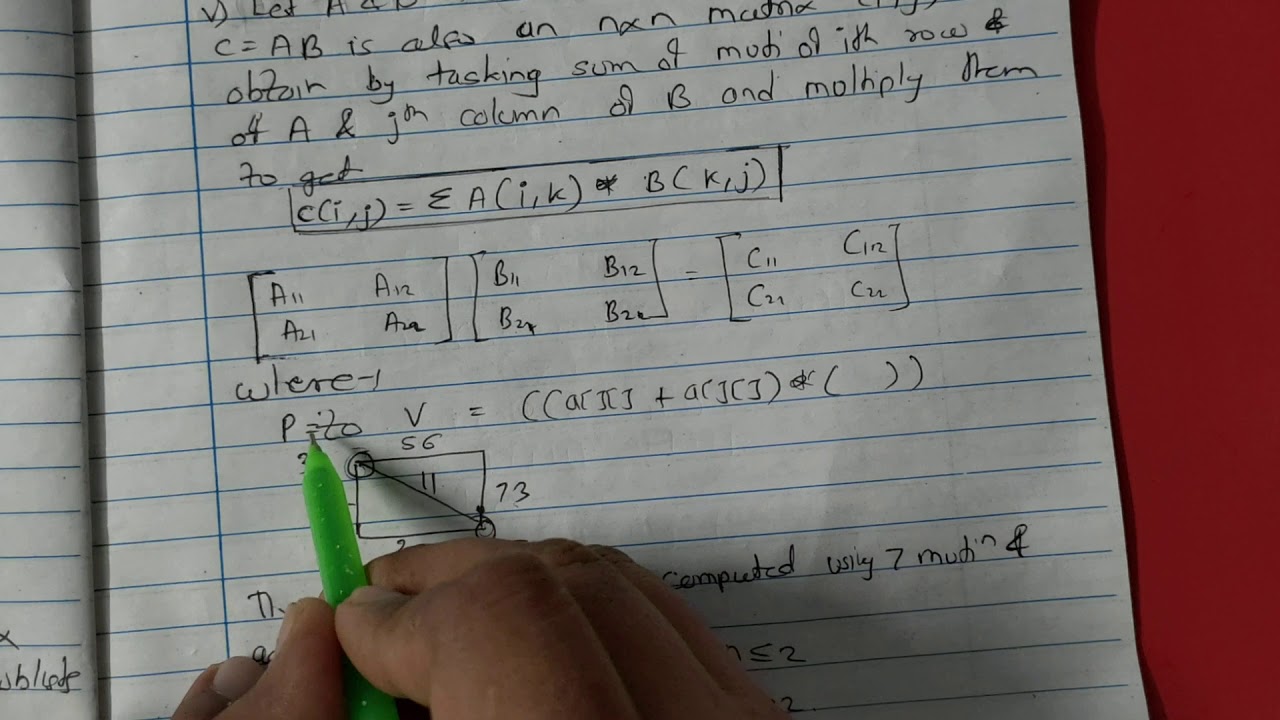 v) Let A & B
C = AB is also an nxn matrix (i,j)
obtain by tasking sum of muti of ith row &
of A & jth column of B and moltiply them
To get
C(i,j) = Σ A(i,k) * B(k,j)
[A11 A12] [B11 B12] = [C11 C12]
[A21 A22] [B21 B22] [C21 C22]
where-1
P to V = ((a[][] + a[][]) * ( ))
56
11
73
computed using 7 mutin &
n ≤ 2
2.